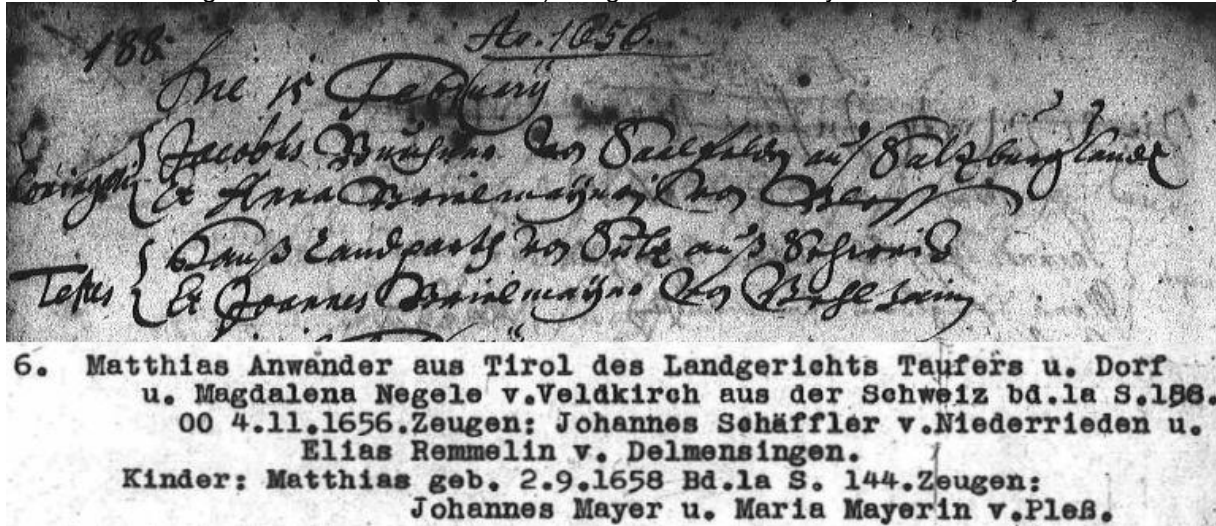 188
Ao. 1656.
Die 15 February
Jacobus von Saalfelden auß Salzburg landt
Et Anna von Pleß
Hanß Landparth von Sultz auß Schweitz
Testes Et Joannes von
6. Matthias Anwander aus Tirol des Landgerichts Taufers u. Dorf
u. Magdalena Negele v.Veldkirch aus der Schweiz bd.la S.188.
OO 4.11.1656.Zeugen: Johannes Schäffler v.Niederrieden u.
Elias Remmelin v. Delmensingen.
Kinder: Matthias geb. 2.9.1658 Bd.la S. 144.Zeugen:
Johannes Mayer u. Maria Mayerin v.Pleß.